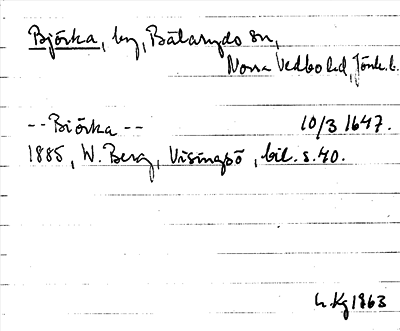 Björka, by, Bälaryds sn,
Norra Vedbo hd, Jönk. l.
-- Biörka -- 10/3 1647.
1885, W. Berg, Visingsö, bil. s. 40.
1863